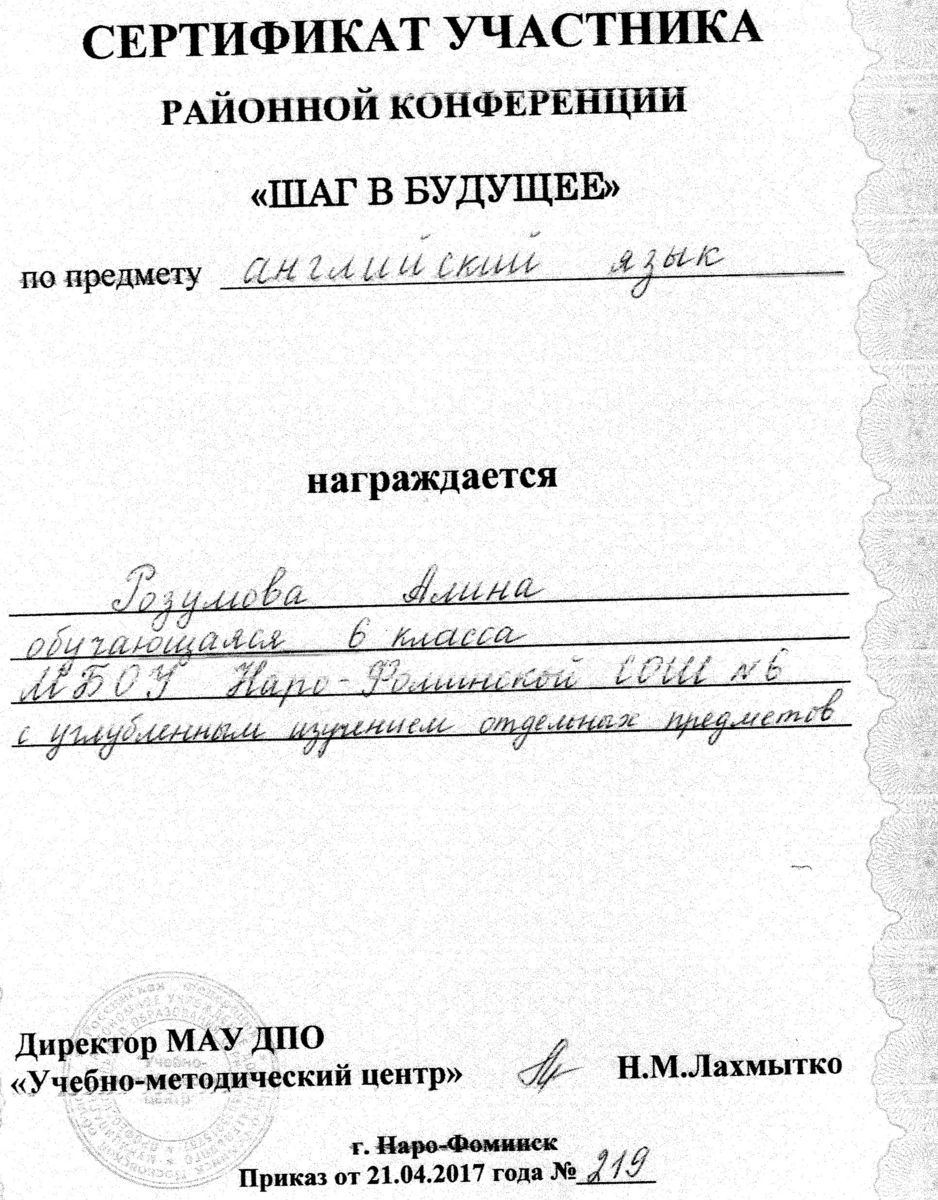 СЕРТИФИКАТ УЧАСТНИКА
РАЙОННОЙ КОНФЕРЕНЦИИ
«ШАГ В БУДУЩЕЕ»
по предмету английский язык
награждается
Розумова Алина
обучающаяся 6 класса
МБОУ Наро-Фоминской СОШ №6
с углубленным изучением отдельных предметов
Директор МАУ ДПО
«Учебно-методический центр» Н.М.Лахмытко
г. Наро-Фоминск
Приказ от 21.04.2017 года № 219